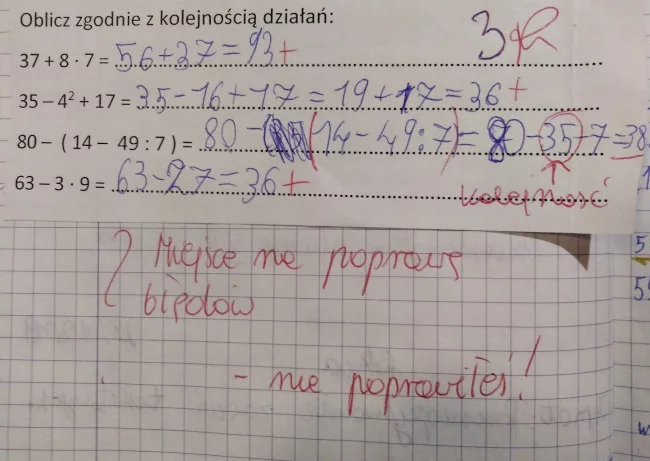 Oblicz zgodnie z kolejnością działań:
37 + 8 · 7 = 56+37=93+
35 – 4² + 17 = 35-16+17=19+17=36+
80 – ( 14 – 49 : 7 ) = 80-(14-49:7)=80-35÷7=38
63 – 3 · 9 = 63-27=36+
kolejność
Miejsce na poprawę
błędów
- nie poprawiłeś!